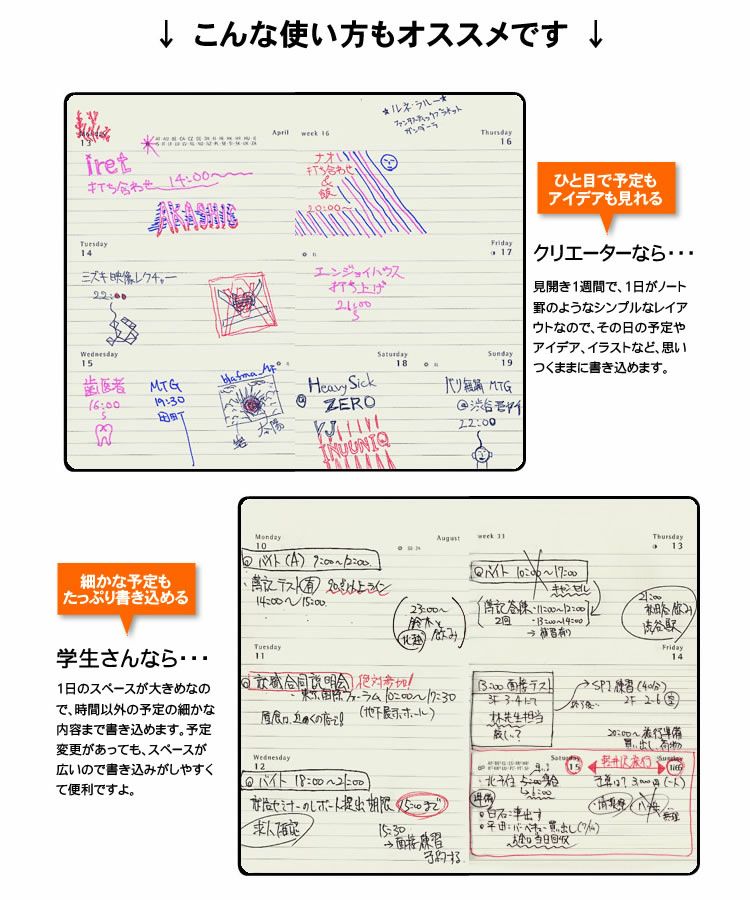 ↓ こんな使い方もオススメです ↓
Monday
13
April
iret
打ち合わせ 14:00～
AKASHIC
Tuesday
14
ミズキ映像レクチャー
22:00
Wednesday
15
歯医者
16:00
MTG
19:30
田町
太陽
week 16
★ルネ・ラルー★
ファンタスティックプラネット
ガンダーラ
Thursday
16
ナオ
打ち合わせ
&
飯
20:00～
Friday
17
エンジョイハウス
打ち上げ
21:00
Saturday
18
Heavy Sick
ZERO
VJ
INUUNIQ
Sunday
19
MTG
@渋谷
22:00
ひと目で予定も
アイデアも見れる
クリエーターなら・・・
見開き1週間で、1日がノート
罫のようなシンプルなレイア
ウトなので、その日の予定や
アイデア、イラストなど、思い
つくままに書き込めます。
細かな予定も
たっぷり書き込める
学生さんなら・・・
1日のスペースが大きめなの
で、時間以外の予定の細かな
内容まで書き込めます。予定
変更があっても、スペースが
広いので書き込みがしやすく
て便利ですよ。
Monday
10
August
バイト (A) 9:00～12:00
簿記テスト
14:00～15:00
23:00～
鈴木と
飲み
Tuesday
11
就職合同説明会 絶対参加!
東京国際フォーラム 10:00～17:30
(地下展示ホール)
Wednesday
12
バイト 18:00～21:00
セミナーのレポート提出期限 15:00まで
15:30
→面接練習
予約する
week 33
Thursday
13
バイト 10:00～17:00
キャンセル
11:00～12:00
2回 ・13:00～14:00
21:00
飲み
渋谷駅
Friday
14
13:00 面接テスト
3F 3-4にて
林先生担当
厳しい?
→SPI練習 (40分)
2F 2-6
20:00～旅行準備
買い出し
Saturday
15
軽井沢旅行
Sunday
16
5:00集合
→6:00
準備
白石:車出す
平田:バーベキュー買い出し
当日回収